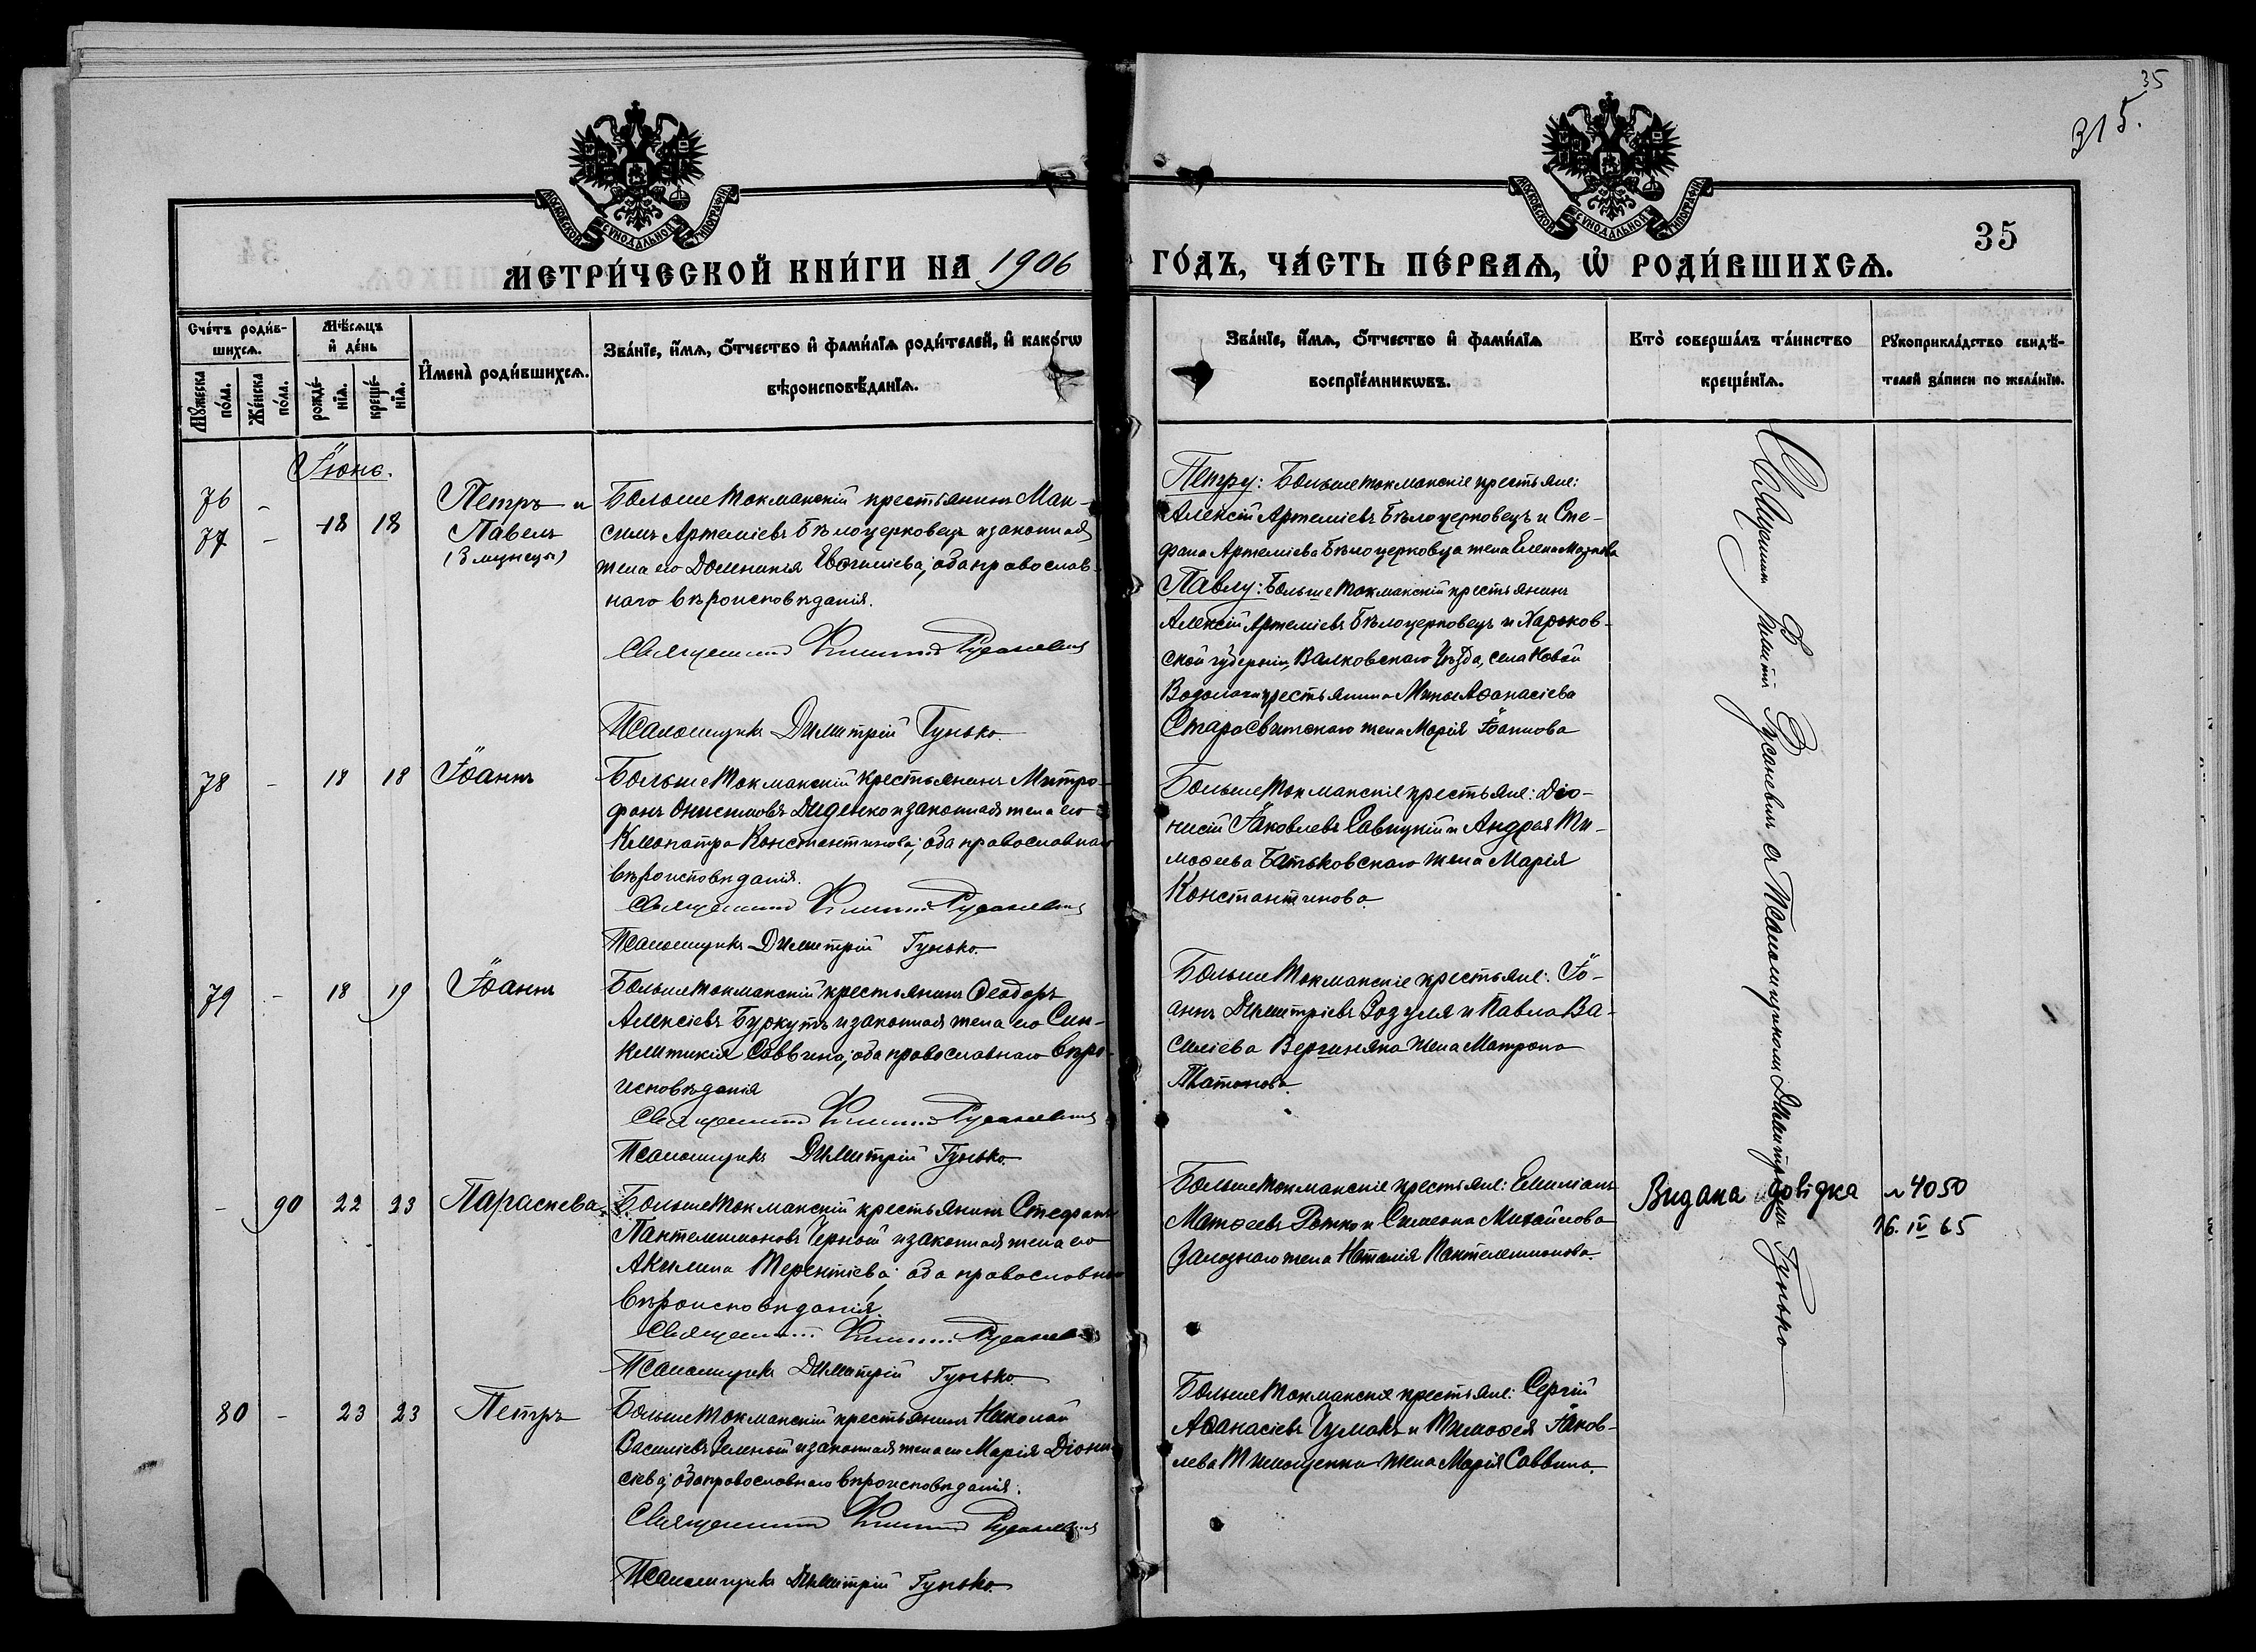 35
315.
МОСКОВСКОЙ СУНОДАЛЬНОЙ ТИПОГРАФІИ
МОСКОВСКОЙ СУНОДАЛЬНОЙ ТИПОГРАФІИ
35
МЕТРИ́ЧЕСКОЙ КНИ́ГИ НА 1906
ГО́ДЪ, ЧА́СТЬ ПЕ́РВАѦ, Ѡ РОДИ́ВШИХСѦ.
Сче́тъ роди́в-
шихсѧ.
Мꙋ́жеска по́ла.
Же́нска по́ла.
Мѣ́сѧцъ
и де́нь
рожде́-
нїѧ.
креще́-
нїѧ.
И҆мена̀ роди́вшихсѧ.
Зва́нїе, и҆́мѧ, ѻ҆́тчество и҆ фами́лїѧ роди́телей, и҆ како́гѡ
вѣроисповѣ́данїѧ.
Зва́нїе, и҆́мѧ, ѻ҆́тчество и҆ фами́лїѧ
воспрїе́мникѡвъ.
Кто̀ соверша́лъ та́инство
креще́нїѧ.
Рꙋкоприкла́дство свидѣ́-
телей за́писи по жела́нїю.
Іюнь.
76 -
77 -
18 18
Петръ и
Павелъ
(Близнецы)
БольшеТокмакскій крестьянинъ Мак-
симъ Артеміевъ Бѣлоцерковецъ и законная
жена его Домникія Евѳиміева; оба православ-
наго вѣроисповѣданія.
Священникъ Филиппъ Русаневичъ
Псаломщикъ Димитрій Гунько.
Петру: Большетокмакскіе крестьяне:
Алексій Артеміевъ Бѣлоцерковецъ и Сте-
фана Артеміева Бѣлоцерковца жена Елена
Павлу: БольшеТокмакскій крестьянинъ
Алексій Артеміевъ Бѣлоцерковецъ и Харьков-
ской губерніи, Валковскаго Уѣзда, села Новой
Водолаги крестьянина Мины Аѳанасіева
Старосвитскаго жена Марія Іоаннова
78 - 18 18 Іоаннъ
БольшеТокмакскій крестьянинъ Митро-
фанъ Онисимовъ Диденко и законная жена его
Клеопатра Константинова; оба православнаго
вѣроисповѣданія.
Священникъ Филиппъ Русаневичъ
Псаломщикъ Димитрій Гунько.
БольшеТокмакскіе крестьяне: Діо-
нисій Іаковлевъ Савицкій и Андрея Ти-
моѳеева Батьковскаго жена Марія
Константинова.
79 - 18 19 Іоаннъ
БольшеТокмакскій крестьянинъ Ѳеодоръ
Алексіевъ Буркутъ и законная жена его Син-
клитикія Саввина; оба православнаго вѣро-
исповѣданія
Священникъ Филиппъ Русаневичъ
Псаломщикъ Димитрій Гунько.
БольшеТокмакскіе крестьяне: Іо-
аннъ Димитріевъ Зозуля и Павла Ва-
силіева Вергиняка жена Матрона
Платонова.
- 90 22 23 Параскева.
БольшеТокмакскій крестьянинъ Стефанъ
Пантелеимоновъ Черный и законная жена его
Акилина Терентіева; оба православнаго
вѣроисповѣданія.
Священникъ Филиппъ Русаневичъ
Псаломщикъ Димитрій Гунько.
БольшеТокмакскіе крестьяне: Емиліанъ
Матѳеевъ и Симеона Михайлова
жена Наталія Пантелеимонова.
Видана довідка
№ 4050
16. IV 65
80 - 23 23 Петръ
БольшеТокмакскій крестьянинъ Николай
Василіевъ Зеленый и законная жена его Марія Діони-
сіева; оба православнаго вѣроисповѣданія.
Священникъ Филиппъ Русаневичъ
Псаломщикъ Димитрій Гунько.
БольшеТокмакскіе крестьяне: Сергій
Аѳанасіевъ Чумакъ и Тимоѳея Іаков-
лева Тимошенка жена Марія Саввина.
Священникъ Филиппъ Русаневичъ съ Псаломщикомъ Димитріемъ Гунько